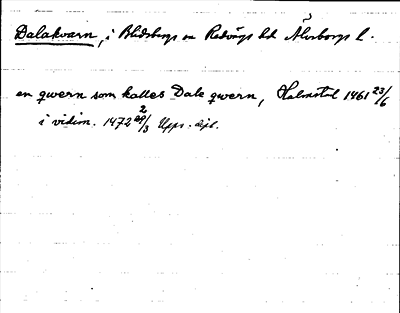 Dalakvarn, i Blidsbergs sn Redvägs hd Älvsborgs l.
en qwern som kalles Dale qwern, Halmstad 1461 23/6
i vidim. 1472 2/3 Upps. dipl.